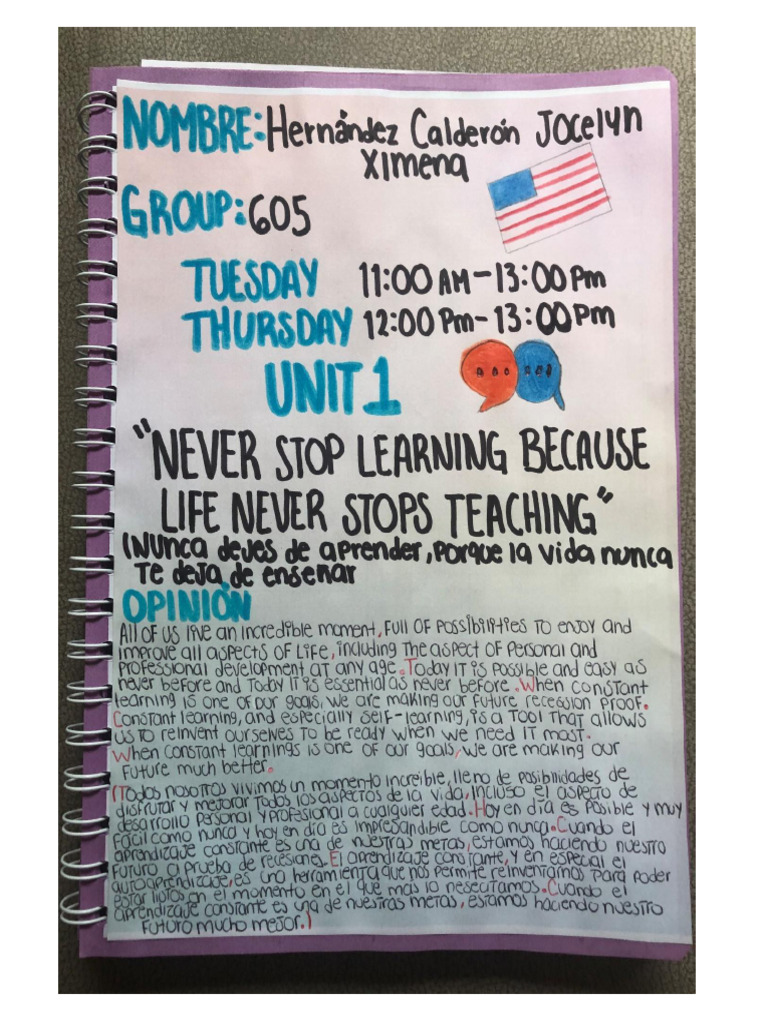 NOMBRE: Hernández Calderón Jocelyn
Ximena
GROUP: 605
TUESDAY 11:00 AM - 13:00 Pm
THURSDAY 12:00 Pm - 13:00 Pm
UNIT 1
"NEVER STOP LEARNING BECAUSE
LIFE NEVER STOPS TEACHING"
(Nunca dejes de aprender, porque la vida nunca
Te deja de enseñar
OPINIÓN
All of us live an incredible moment, full of possibilities to enjoy and
improve all aspects of life, including the aspect of personal and
professional development at any age. Today it is possible and easy as
never before and today it is essential as never before. When constant
learning is one of our goals, we are making our future recession proof.
Constant learning, and especially self-learning, is a tool that allows
us to reinvent ourselves to be ready when we need it most.
When constant learnings is one of our goals, we are making our
future much better.
(Todos nosotros vivimos un momento increible, lleno de posibilidades de
disfrutar y mejorar todos los aspectos de la vida, incluso el aspecto de
desarrollo personal y profesional a cualquier edad. Hoy en día es posible y muy
facil como nunca y hoy en día es impresandible como nunca. Cuando el
aprendizaje constante es una de nuestras metas, estamos haciendo nuestro
futuro a prueba de recesiones. El aprendizaje constante, y en especial el
autoaprendizaje, es una herramienta que nos permite reinventarnos para poder
estar listos en el momento en el que mas lo nesecitamos. Cuando el
aprendizaje constante es una de nuestras metas, estamos haciendo nuestro
futuro mucho mejor.)